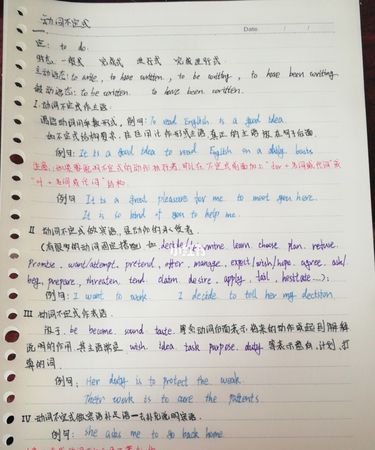 动词不定式
Date
定: to do.
形式: 一般式 完成式 进行式 完成进行式
主动语态: to write, to have written, to be writing, to have been writing
被动语态: to be written. to have been written.
I. 动词不定式作主语.
谓语动词用单数形式, 例句: To read English is a good idea.
例句: It is a good idea to read English on a daily basis
例句 It is a great pleasure for me to meet you here.
It is so kind of you to help me.
II 动词不定式做宾语, 是动作的承受者
decide/determine, learn, choose, plan, refuse,
promise, want/attempt, pretend, offer, manage, expect/wish/hope, agree, ask/
beg, prepare, threaten, tend, claim, desire, apply, fail, hesitate ...);
例句: I want to work I decide to tell her my decision
III 动词不定式作表语
be become sound taste
说明的作用, 其主语常是 wish, idea, task, purpose, duty 等表示意向, 计划, 打
算的词.
例句: Her duty is to protect the weak.
Their work is to cure the patients
IV 动词不定式做宾语补足语—去补充说明宾语.
例句: She asks me to go back home